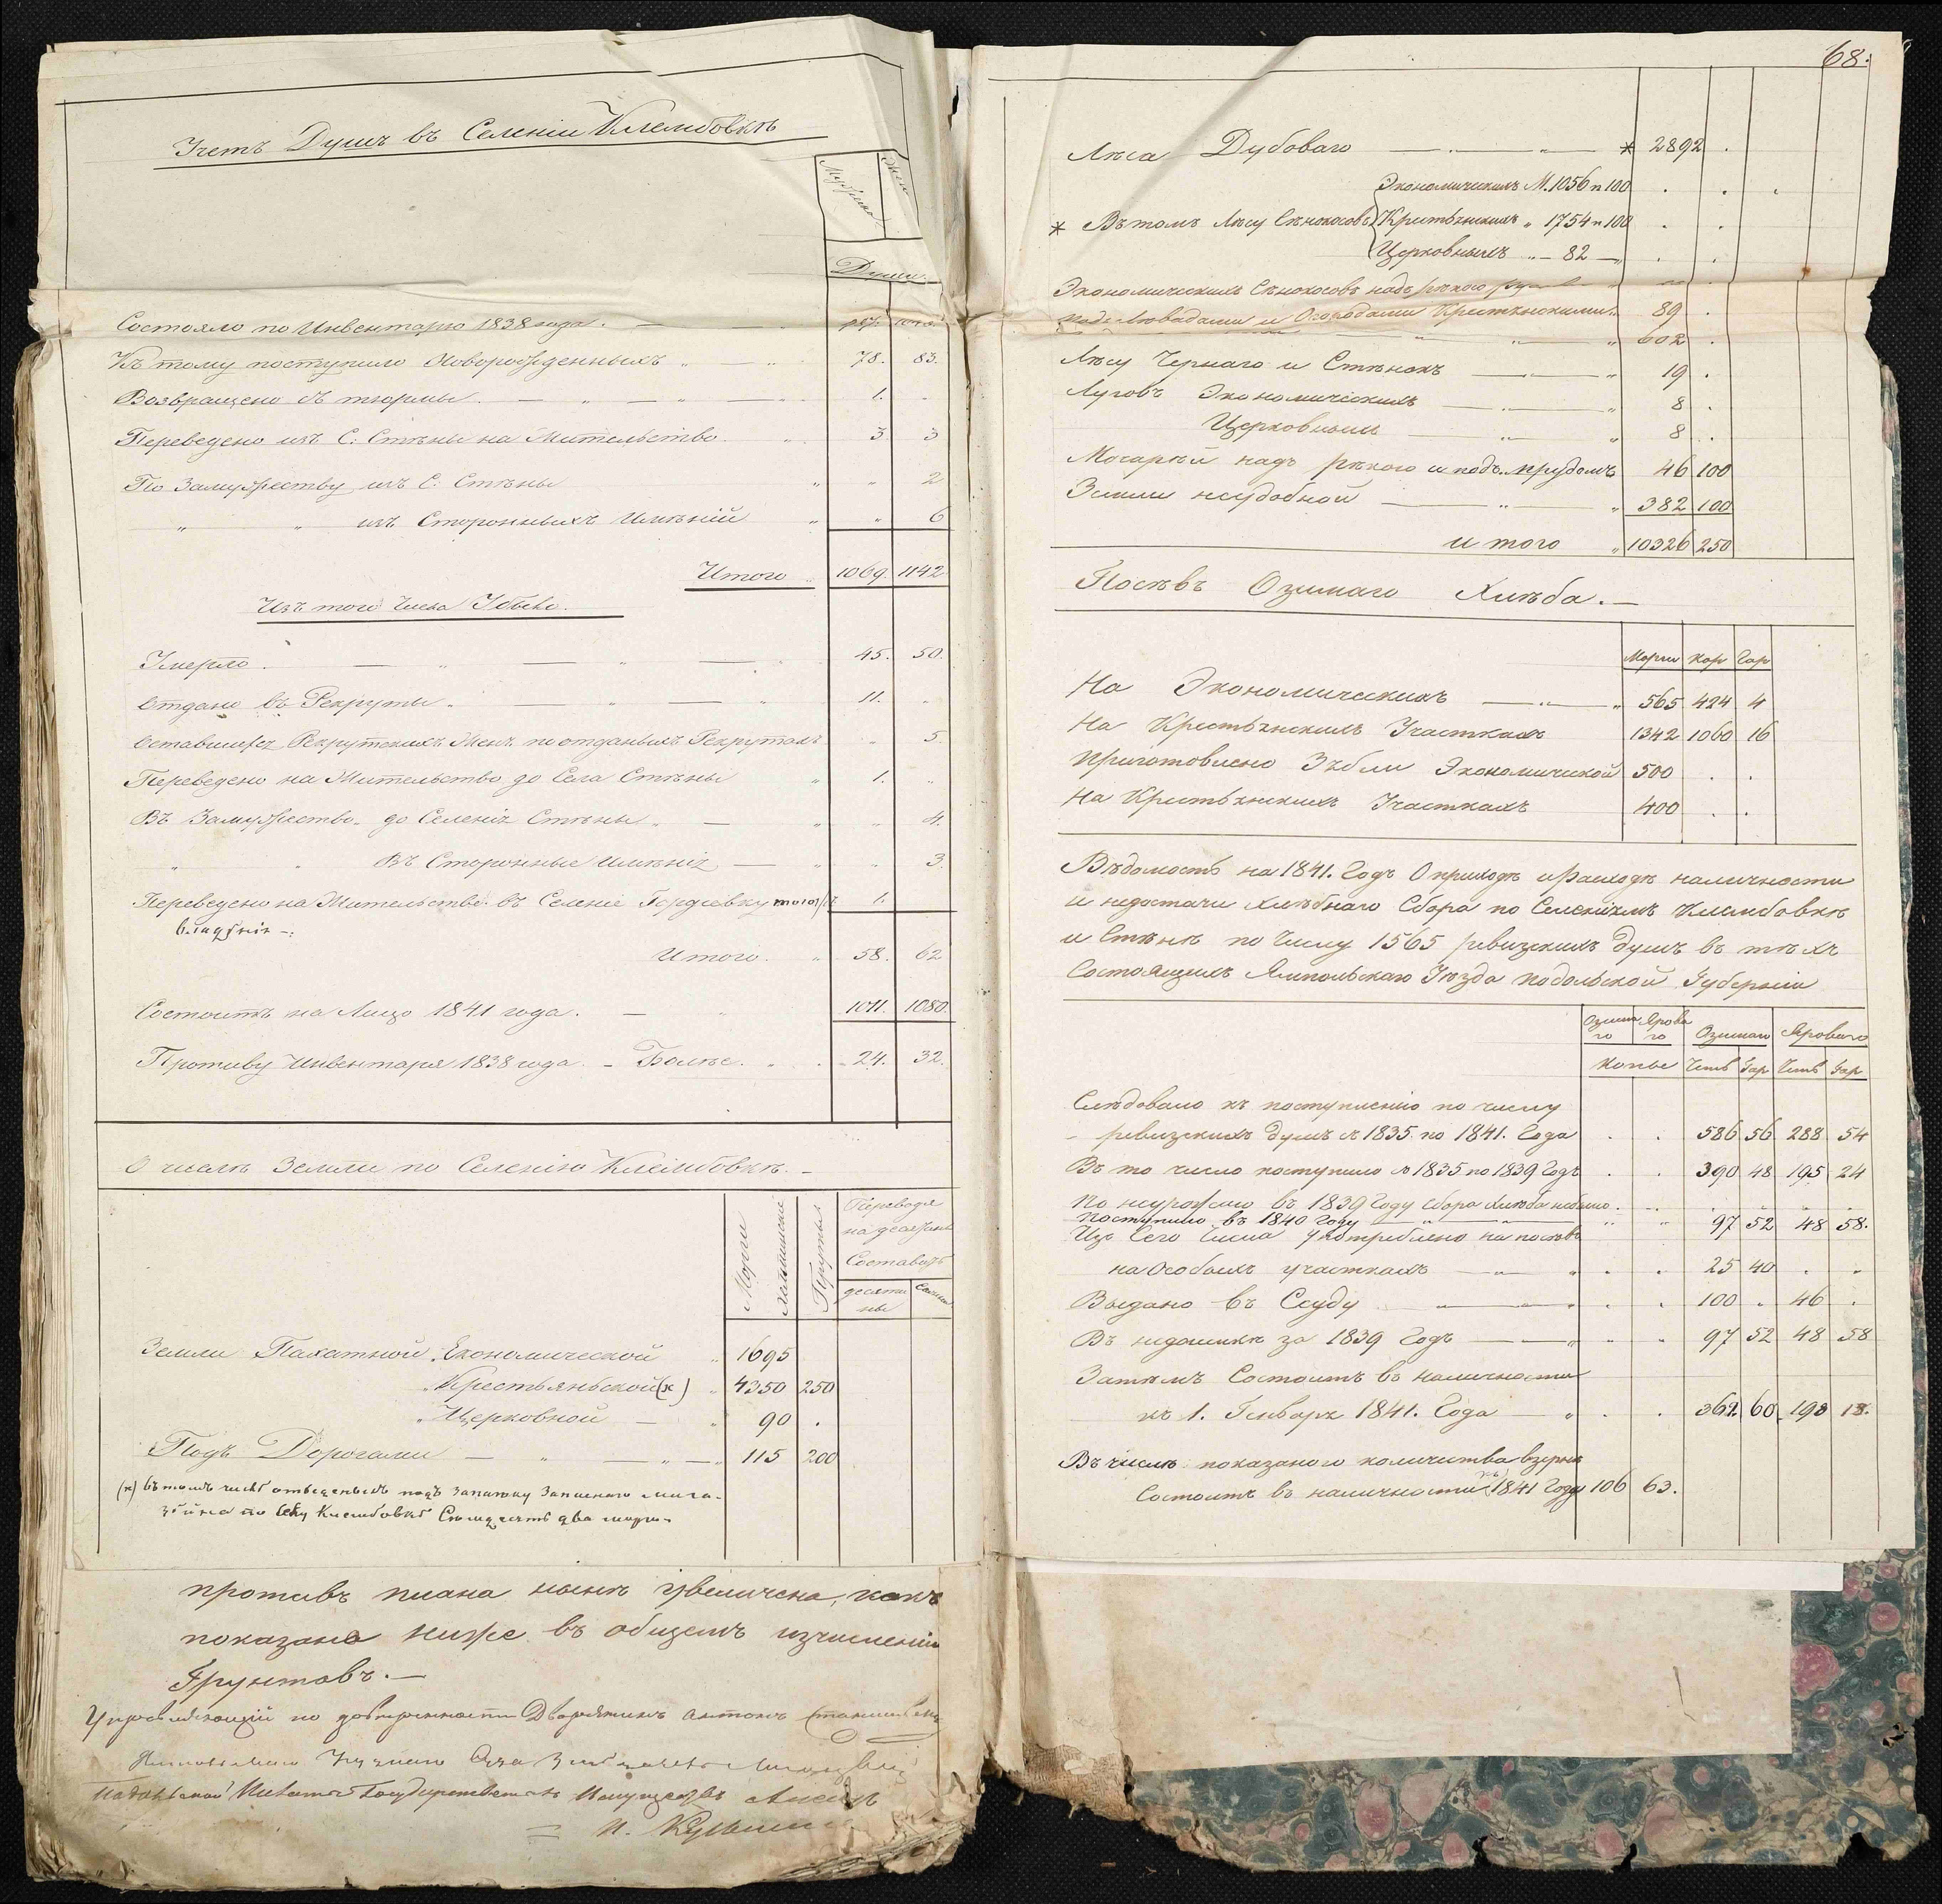 Учетъ Душъ въ Селеніи Клембовкѣ
Мужеска Женска
Души
Состояло по Инвентарю 1838 года. 987. 1048.
Къ тому поступило Новорожденныхъ „ 78. 83.
Возвращено съ тюрмы. 1. „
Переведено изъ С: Стѣны на Жительство 3 3
По Замужеству изъ С: Стѣны „ „ 2
„ „ изъ Сторонныхъ Имѣній „ „ 6
Итого „ 1069. 1142.
Изъ того Числа Убыло.
Умерло. 45. 50.
Отдано въ Рекруты „ 11. „
Оставшихся Рекрутскихъ Женъ по отданыхъ Рекрутахъ „ 5.
Переведено на Жительство до Села Стѣны „ 1. „
Въ Замужество до Селенія Стѣны „ „ 4.
„ „ Въ Сторонные Имѣнія „ „ 3.
Переведено на Жительство въ Селеніе Гордіевку тогожъ 1.
владѣнія
Итого. „ 58. 62
Состоитъ на Лицо 1841 года. 1011. 1080.
Противу Инвентаря 1838 года. Болѣе. 24. 32.
О числѣ Земли по Селенію Клембовкѣ.
Морги Пруты Переводя
на десятины
Составитъ
десяти
ны
Земли Пахатной Економической „ 1695
„ Крестьяньской (х) „ 4350 250
„ Церковной „ 90 .
Подъ Дорогами „ 115 200
(х) въ томъ числѣ отведеныхъ подъ запашку Запаснаго мага-
зѣйна по Селу Клембовкѣ Семдесятъ два морги
противъ плана нынѣ увеличена, какъ
показано ниже въ общемъ изчисленіи
Грунтовъ.
Управляющій по довѣренности Дворянинъ Антонъ
Палаты Государственныхъ Имуществъ
68.
Лѣса Дубоваго * 2892 .
Экономическихъ М. 1056 п 100
* Въ томъ Лѣсу Сѣнокосовъ Крестьянскихъ „ 1754 п 100
Церковныхъ „ 82
Экономическихъ Сѣнокосовъ надъ рѣкою
подъ Левадами и Огородами Крестьянскими 89 .
602 .
Лѣсу Чернаго и Стѣнокъ 19 .
Луговъ Экономическихъ 8 .
Церковныхъ 8 .
Мочарѣй надъ рѣкою и подъ прудомъ 46 100
Земли неудобной 382 100
Итого „ 10326 250
Посѣвъ Озимаго Хлѣба.
Морги Кор Гар
На Экономическихъ „ 565 424 4
На Крестьянскихъ Участкахъ 1342 1060 16
Приготовлено Зѣбли Экономической 500 . .
На Крестьянскихъ Участкахъ 400 . .
Вѣдомость на 1841. Годъ О приходѣ и расходѣ наличности
и недостачи хлѣбнаго Сбора по Селеніямъ Клембовкѣ
и Стѣнѣ по Числу 1565 ревизскихъ душъ въ тѣхъ
Состоящихъ Ямпольскаго Уѣзда Подольской Губерніи
Озима Ярова
го го Озимаго Яроваго
Копье Четв Гар Четв Гар
Слѣдовало къ поступленію по числу
ревизскихъ душъ съ 1835 по 1841. Года . . 586 56 288 54
Въ то число поступило съ 1835 по 1839 Годъ . . 390 48 195 24
По неурожаю въ 1839 Году сбора хлѣба небыло.
Поступило въ 1840 Году „ „ 97 52 48 58.
Изъ Сего Числа Употреблено на посѣвъ
на Особыхъ участкахъ „ . . 25 40 . „
Выдано въ Ссуду „ . . 100 „ 46 .
Въ недоимкѣ за 1839 Годъ „ „ 97 52 48 58
Затѣмъ Состоитъ въ наличности
къ 1. Генваря 1841. Года „ . . 362. 60 198 18.
Въ числѣ показаного количества въ зернѣ
Состоитъ въ наличности къ 1841 Году 106 63.